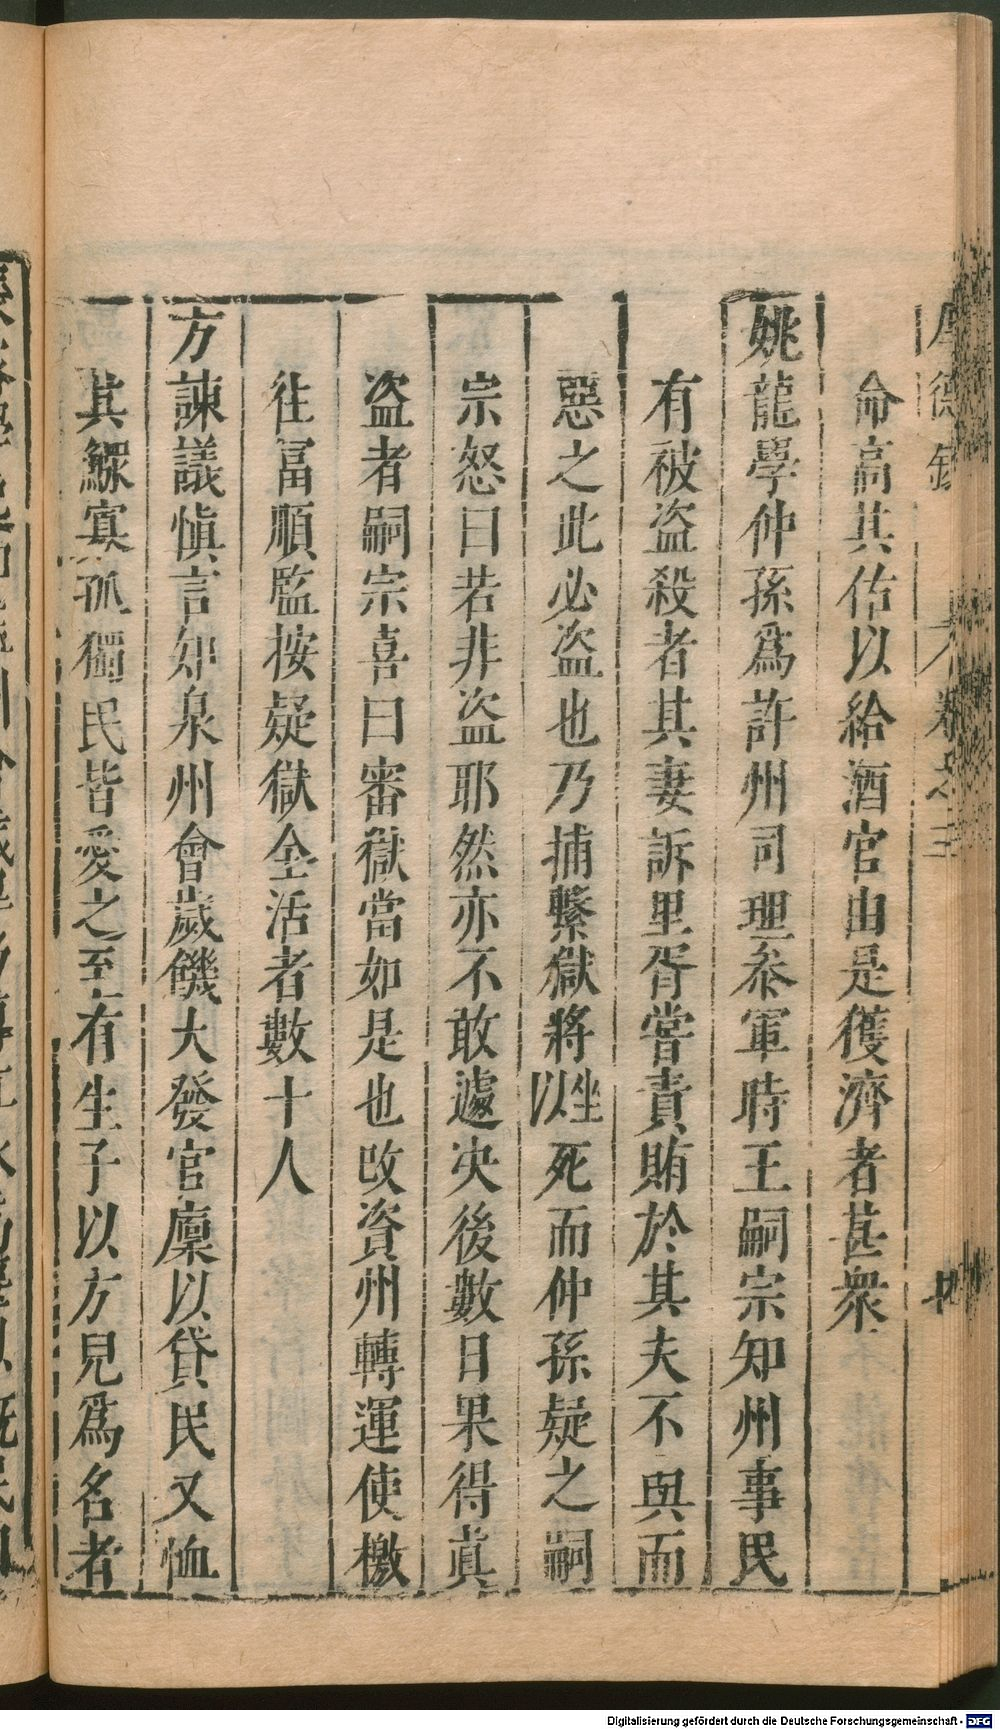 德錄 卷之三
命高其估以給酒官由是獲濟者甚衆
姚龍學仲孫爲許州司理叅軍時王嗣宗知州事民
有被盗殺者其妻訴里胥嘗責賄於其夫不與而
惡之此必盗也乃捕繫獄將坐以死而仲孫疑之嗣
宗怒曰若非盗耶然亦不敢遽决後數日果得眞
盗者嗣宗喜曰審獄當如是也改資州轉運使檄
往富順監按疑獄全活者數十人
方諫議愼言知泉州會歲饑大發官廩以貸民又恤
其鰥寡孤獨民皆愛之至有生子以方見爲名者
Digitalisierung gefördert durch die Deutsche Forschungsgemeinschaft - DFG